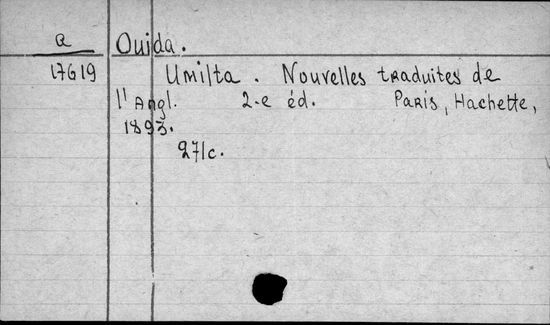 a Ouida.
17619 Umilta. Nouvelles traduites de
l'Angl. 2-e éd. Paris, Hachette,
1893.
271c.